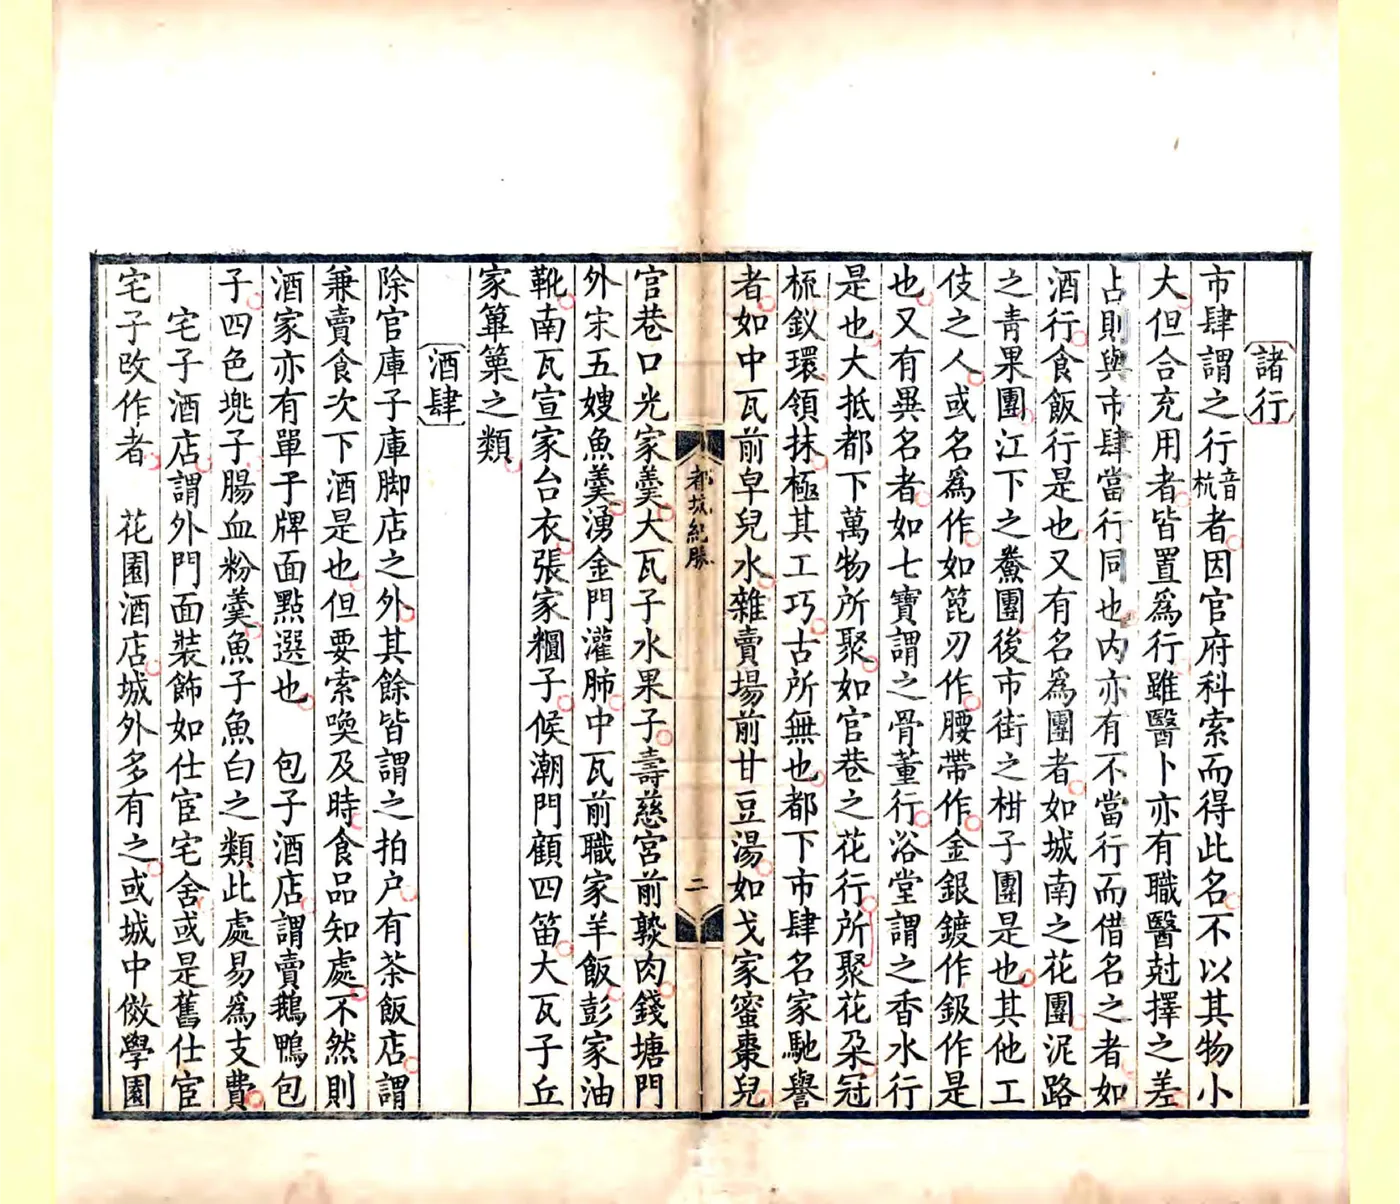 諸行
市肆謂之行音杭者因官府科索而得此名不以其物小
大但合充用者皆置爲行雖醫卜亦有職醫尅擇之差
占則與市肆當行同也内亦有不當行而借名之者如
酒行食飯行是也又有名爲團者如城南之花團泥路
之青果團江下之鮝團後市街之柑子團是也其他工
伎之人或名爲作如箆刃作腰帶作金銀鍍作鈒作是
也又有異名者如七寶謂之骨董行浴堂謂之香水行
是也大抵都下萬物所聚如官巷之花行所聚花朶冠
梳釵環領抹極其工巧古所無也都下市肆名家馳譽
者如中瓦前皁兒水雜賣場前甘豆湯如戈家蜜棗兒
都城紀勝
二
官巷口光家羹大瓦子水果子壽慈宮前熟肉錢塘門
外宋五嫂魚羹湧金門灌肺中瓦前職家羊飯彭家油
靴南瓦宣家台衣張家糰子候潮門顧四笛大瓦子丘
家篳篥之類
酒肆
除官庫子庫脚店之外其餘皆謂之拍户有茶飯店謂
兼賣食次下酒是也但要索喚及時食品知處不然則
酒家亦有單子牌面點選也　包子酒店謂賣鵝鴨包
子四色兠子腸血粉羹魚子魚白之類此處易爲支費
宅子酒店謂外門面裝飾如仕宦宅舍或是舊仕宦
宅子改作者　花園酒店城外多有之或城中倣學園